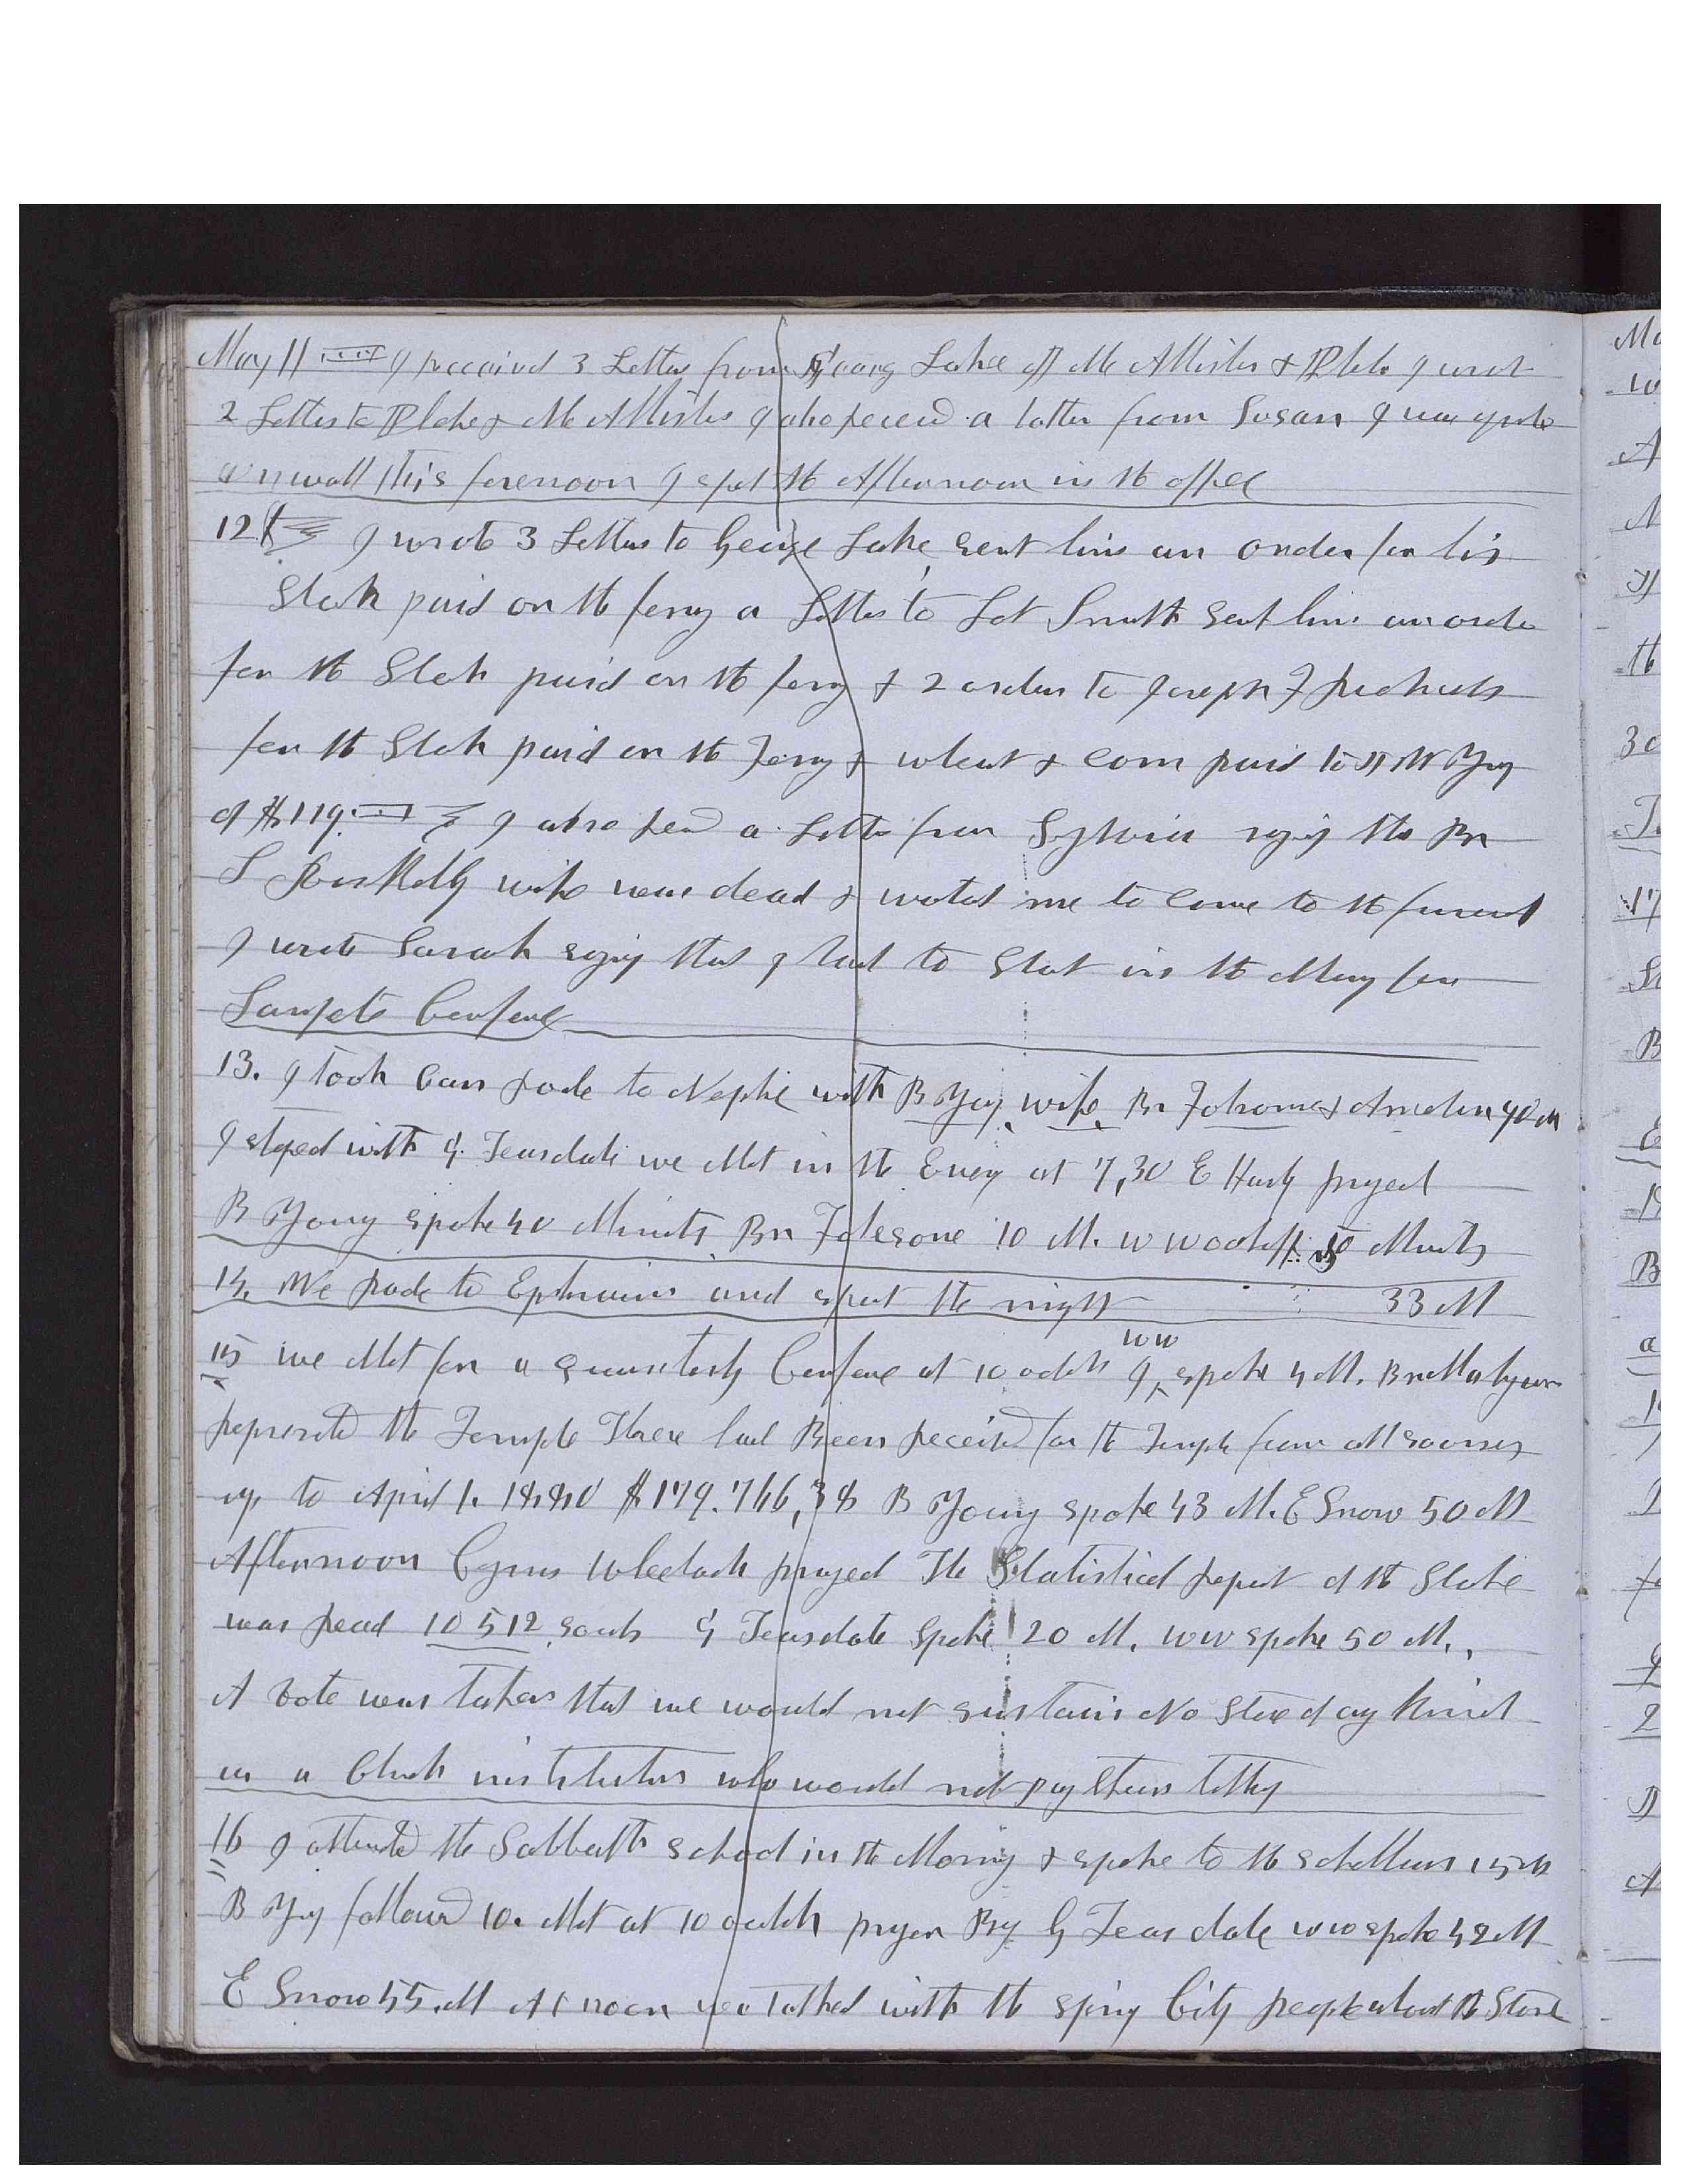 May 11 I received 3 Letters from George Lake J D McAllister & I wrote
2 Letters to & McAllister I also receivd a letter from Susan I was quite
unwell this forenoon I spet the Afternoon in the office
12 I wrote 3 Letters to George Lake sent him an order for his
Stock paid on the ferry a Letter to Lot Smith sent him an order
for the Stock paid on the ferry & 2 orders to Joseph H Richards
for the Stock paid on the Ferry & wheat & corn paid to J W Young
of $119. I also recd a Letter from Sylvia sayig that Br
S wife was dead & wated me to come to the funeral
I wrote Sarah sayig that I had to Start in the Mornig for
Sanpete Confere
13. I took Cars rode to Nephi with B Yong wife Br Folsom & Amelia 90 M
I staped with G. Teasdale we Met in the Eveng at 7,30 prayed
B Young spoke 40 Minuts Br Folsome 10 M. W Woodruff Minuts
14. We rode to Ephraim and spent the night 33 M
15 we Met for a Quarterly Confere at 10 oclok I WW spoke 4 M. Br
represented the Temple There had Been received for the Temple from all sources
up to April 1. 1880 $179.766,38 B Young spoke 43 M. E Snow 50 M
Afternoon Cyrus Wheelock prayed The Statistical report of the Stake
was read 10 512 souls G Teasdale Spoke 20 M. WW spoke 50 M.,
A vote was taken that we would not sustain No Store of any kind
as a Church institution who would not pay their tithing
16 I attended the Sabbath School in the Mornig & spoke to the schollars 15 M
B Yong followd 10. Met at 10 oclok prayer By G Teasdale WW spoke 42 M
E Snow 45. M At noon we talked with the Spring City people about the Store